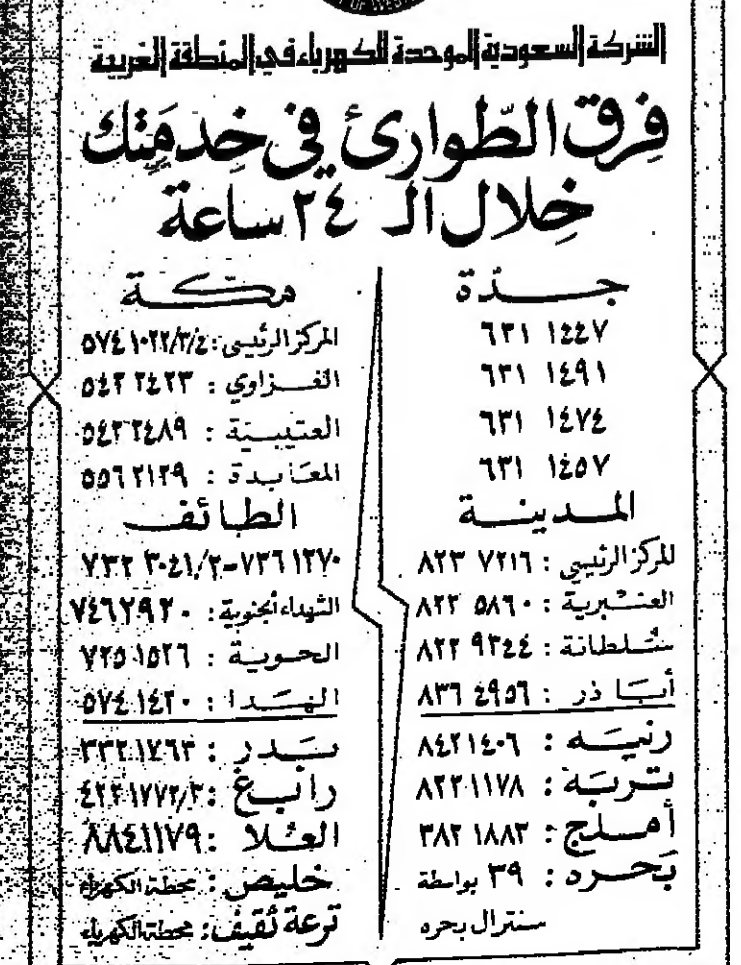 الشركة السعودية الموحدة للكهرباء في المنطقة الغربية
فِرق الطّوارئ في خِدمَتِك
خِلال الـ ٢٤ ساعة
جـدّة
٦٣١ ١٤٤٧
٦٣١ ١٤٩١
٦٣١ ١٤٧٤
٦٣١ ١٤٥٧
المـدينـة
المركز الرئيسي : ٨٢٣ ٧٢١٦
العنـبرية : ٨٢٣ ٥٨٦٠
سُلطانة : ٨٢٢ ٩٣٤٤
أبـا ذر : ٨٣٦ ٤٩٥٦
رنيـه : ٨٤٢١٤٠٦
تـربـة : ٨٢٣١١٧٨
أمـلج : ٣٨٢ ١٨٨٢
بَحـره : ٣٩ بواسطة
سنترال بحره
مكـة
المركز الرئيسى : ٥٧٤١٠٢٢/٣/٤
الغـزاوي : ٥٤٢٢٤٢٣
العتيبيـة : ٥٤٢٢٤٨٩
المعـابـدة : ٥٥٦٢١٢٩
الطـائف
٧٣٢ ٣٠٤١/٢-٧٣٦١٢٧٠
الشهداء الجنوبية : ٧٤٦٢٩٢٠
الحـويـة : ٧٢٥١٥٢٦
الهـدا : ٥٧٤١٤٢٠
بـدر : ٣٣٢١٧٦٣
رابـغ : ٤٢٢١٧٧٢/٣
العُـلا : ٨٨٤١١٧٩
خليص : محطة الكهرباء
ترعة ثقيف : محطة الكهرباء